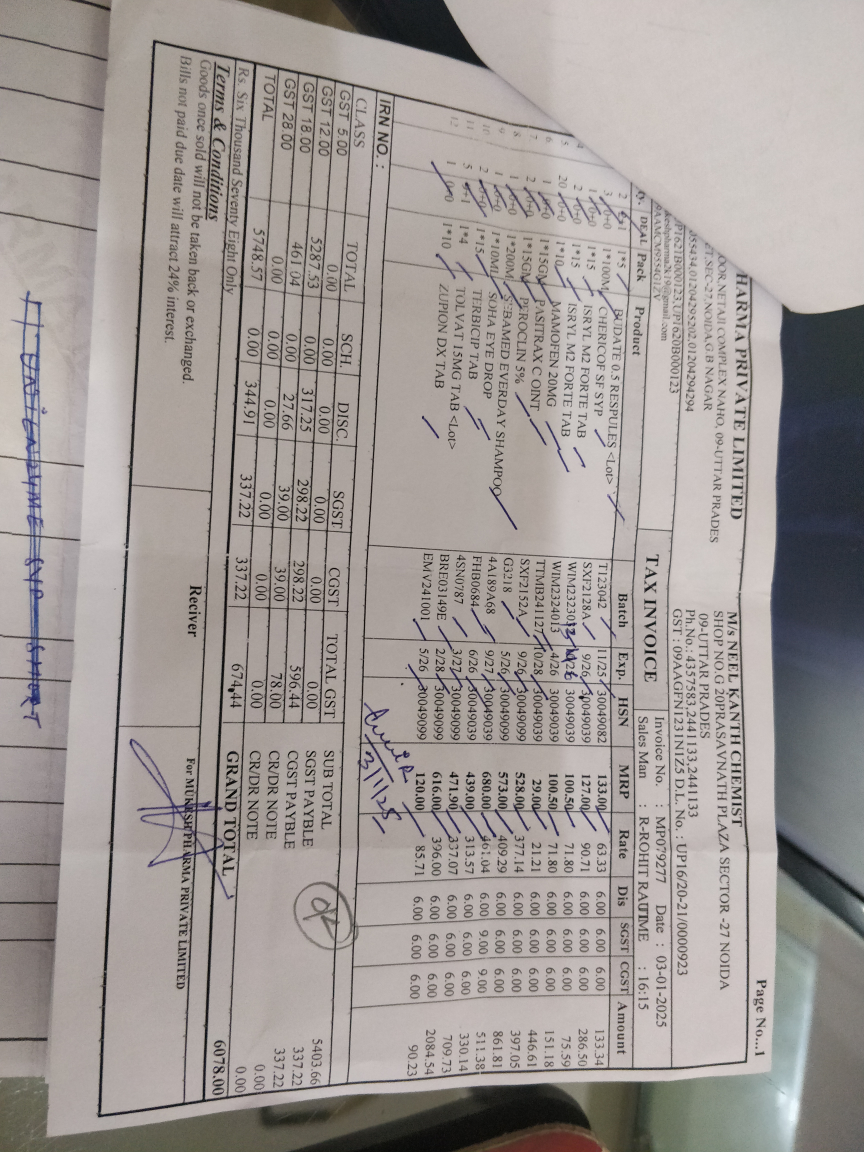 HARMA PRIVATE LIMITED
OOR,NETAJI COMPLEX NAHO, 09-UTTAR PRADES
CT.SEC-27,NOIDA,G B NAGAR
055434,01204295202,01204294294
UP1621B000123,UP1620B000123
keshpharma2k19@gmail.com
M/s NEEL KANTH CHEMIST
SHOP NO.G 20PRASAVNATH PLAZA SECTOR -27 NOIDA
09-UTTAR PRADES
Ph.No.: 4357583,2441133,2441133
GST : 09AAGFN1231N1Z5 D.L. No.: UP16/20-21/0000923
Page No...1
TAX INVOICE
Invoice No. : MP079277 Date : 03-01-2025
Sales Man : R-ROHIT RAUTIME : 16:15
DEAL Pack Product Batch Exp. HSN MRP Rate Dis SGST CGST Amount
2 1*5 BUDATE 0.5 RESPULES <Lot> T123042 11/25 30049082 133.00 63.33 6.00 6.00 6.00 133.34
3 0+0 1*100M CHERICOF SF SYP SXF2128A 9/26 30049039 127.00 90.71 6.00 6.00 6.00 286.50
1 0+0 1*15 ISRYL M2 FORTE TAB 30049039 100.50 71.80 6.00 6.00 6.00 75.59
2 0+0 1*15 ISRYL M2 FORTE TAB WIM2324013 4/26 30049039 100.50 71.80 6.00 6.00 6.00 151.18
20 0+0 1*10 MAMOFEN 20MG TTMB241127 10/28 30049039 29.00 21.21 6.00 6.00 6.00 446.61
1 0+0 1*15GM PASITRAX C OINT SXF2152A 9/26 30049039 528.00 377.14 6.00 6.00 6.00 397.05
2 0+0 1*15GM PEROCLIN 5% G3218 5/26 30049099 573.00 409.29 6.00 6.00 6.00 861.81
1 0+0 1*200M SEBAMED EVERDAY SHAMPOO 4A189A68 9/27 30049039 680.00 461.04 6.00 9.00 9.00 511.38
1 0+0 1*10ML SOHA EYE DROP FHB0684 6/26 30049039 439.00 313.57 6.00 6.00 6.00 330.14
2 0+0 1*15 TERBICIP TAB 4SN0787 3/27 30049099 471.90 337.07 6.00 6.00 6.00 709.73
5 1*4 TOLVAT 15MG TAB <Lot> BRE03149E 2/28 30049099 616.00 396.00 6.00 6.00 6.00 2084.54
1 0+0 1*10 ZUPION DX TAB EMV241001 5/26 30049099 120.00 85.71 6.00 6.00 6.00 90.23
3/1/25
IRN NO. :
CLASS TOTAL SCH. DISC. SGST CGST TOTAL GST
GST 5.00 0.00 0.00 0.00 0.00 0.00
GST 12.00 5287.53 0.00 317.25 298.22 298.22 596.44
GST 18.00 461.04 0.00 27.66 39.00 39.00 78.00
GST 28.00 0.00 0.00 0.00 0.00 0.00 0.00
TOTAL 5748.57 0.00 344.91 337.22 337.22 674.44
SUB TOTAL 5403.66
SGST PAYBLE 337.22
CGST PAYBLE 337.22
CR/DR NOTE 0.00
CR/DR NOTE 0.00
Rs. Six Thousand Seventy Eight Only
GRAND TOTAL 6078.00
Terms & Conditions
Goods once sold will not be taken back or exchanged.
Bills not paid due date will attract 24% interest.
Reciver
For MUKESH PHARMA PRIVATE LIMITED